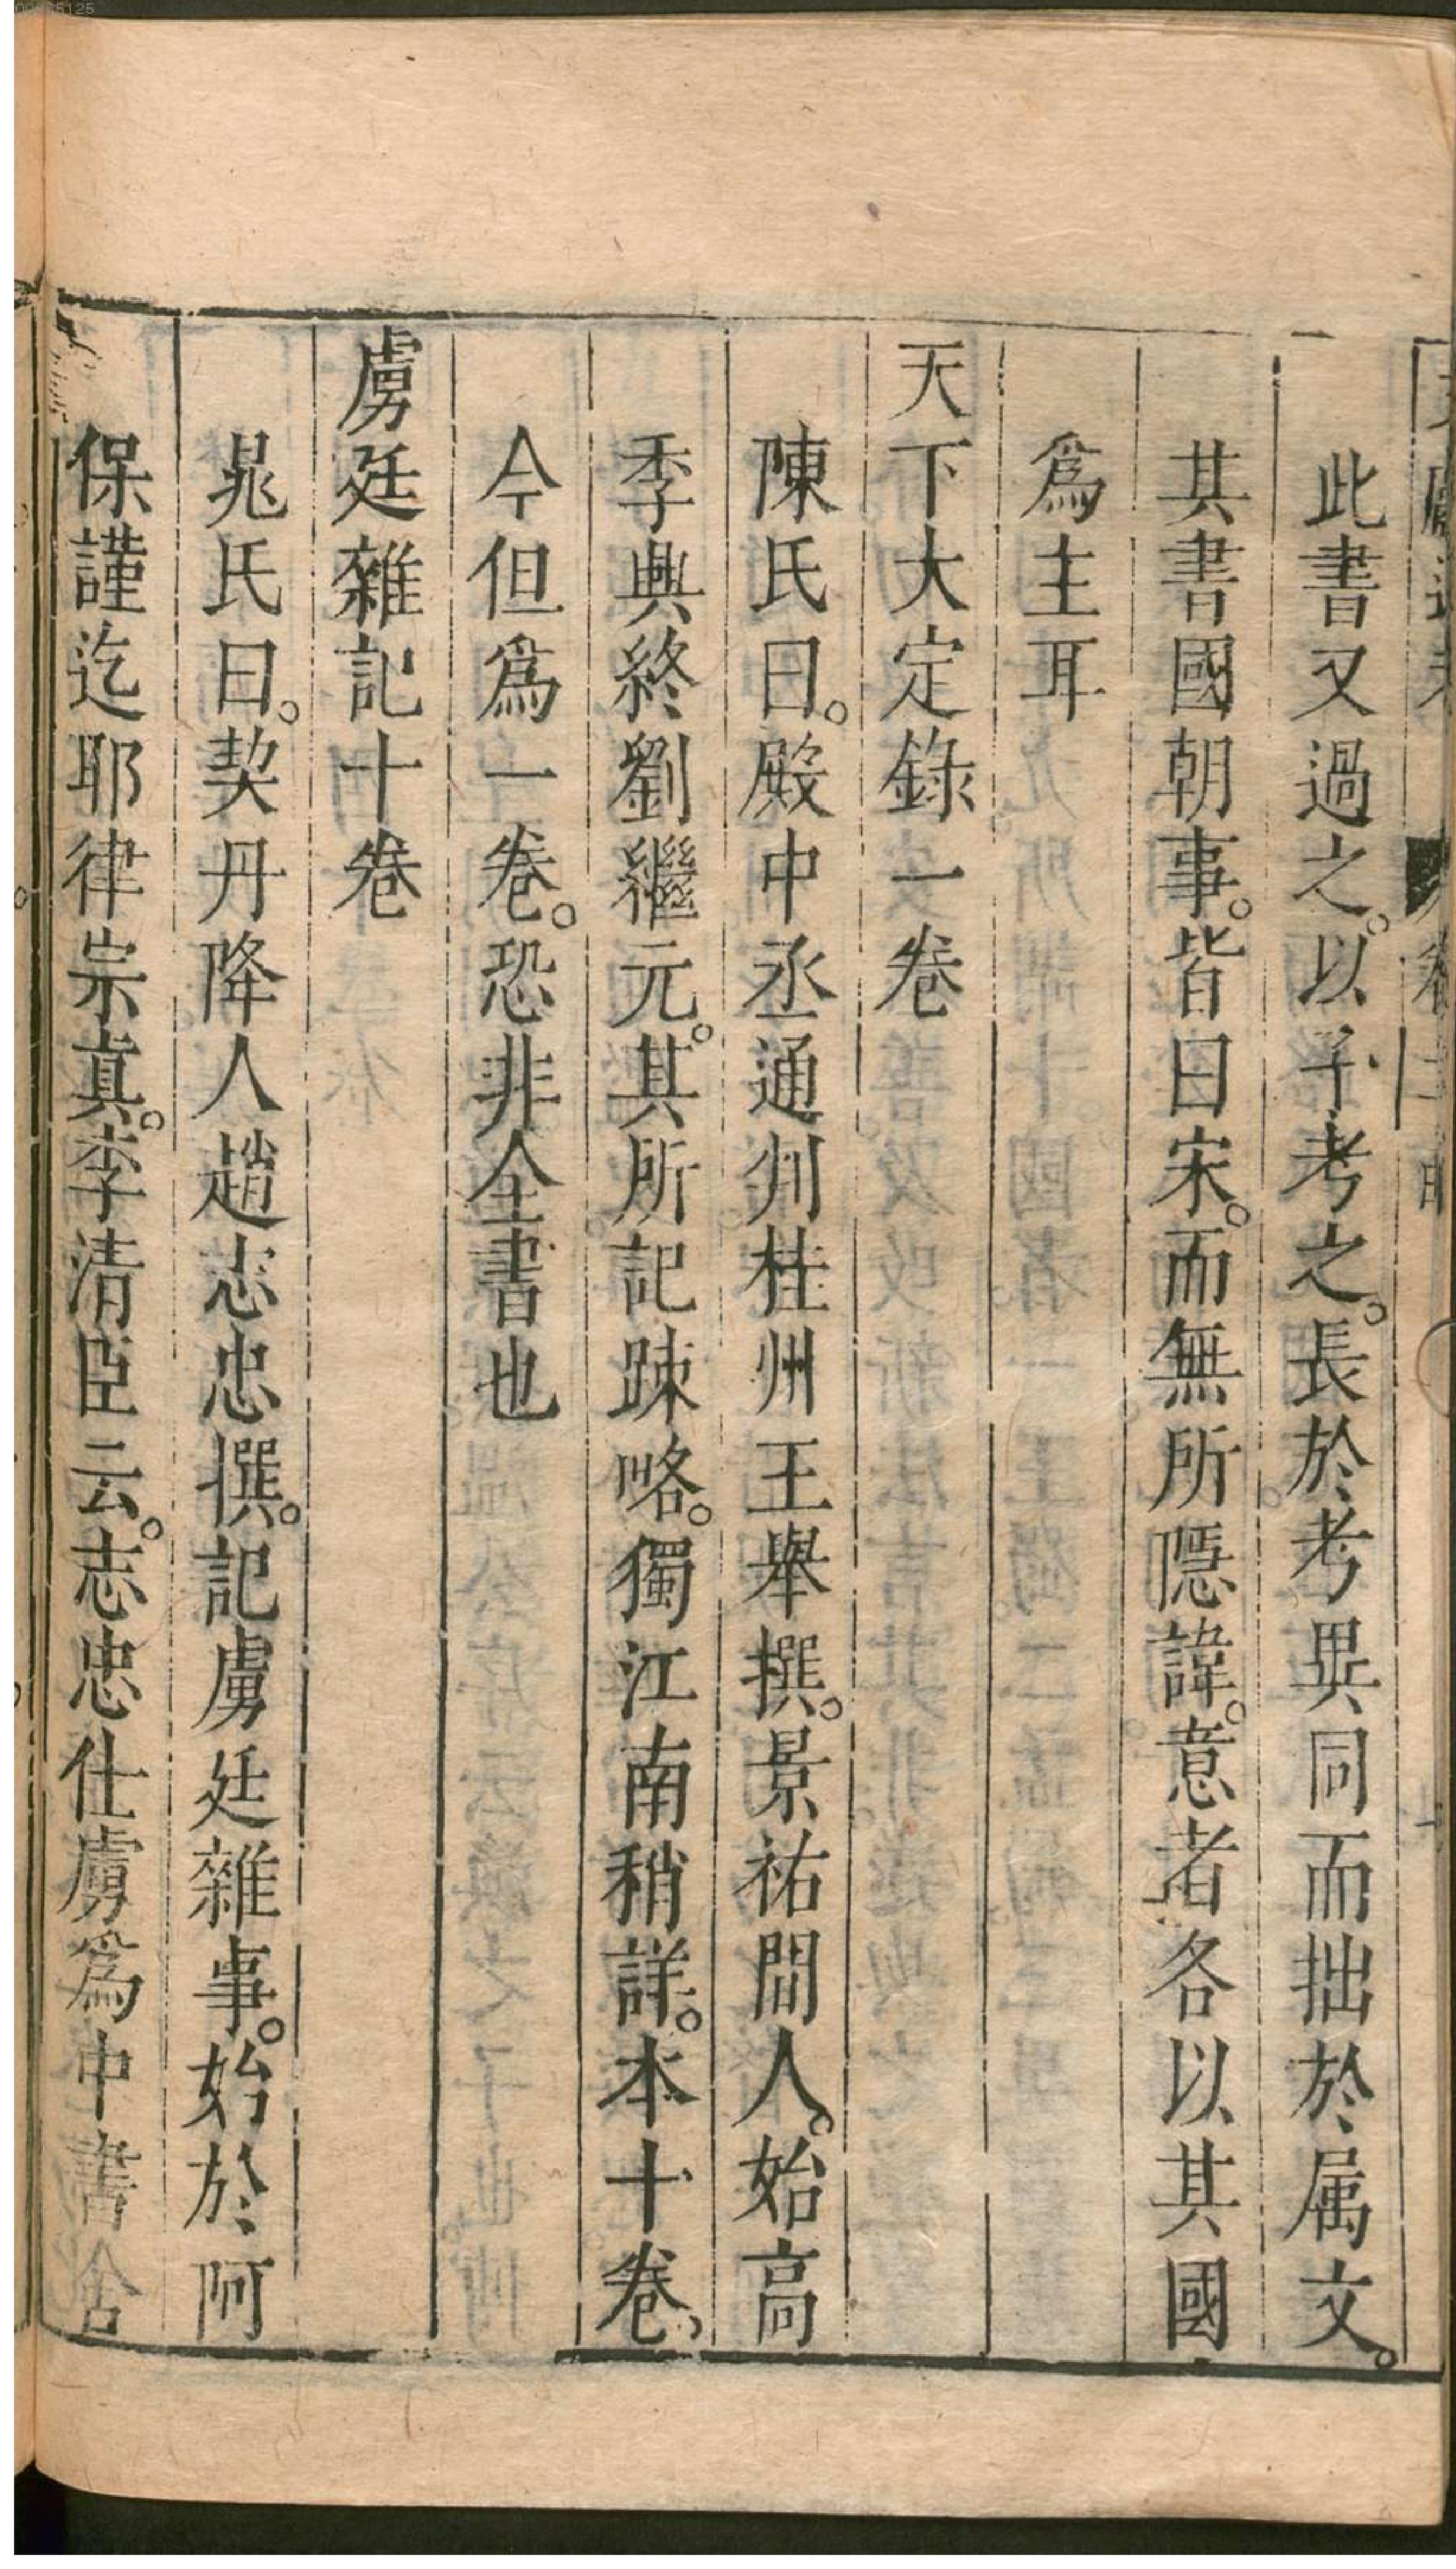 此書又過之。以予考之。長於考異同而拙於属文。
其書國朝事。皆曰宋。而無所隱諱。意者各以其國
爲主耳
天下大定錄一卷
陳氏曰。殿中丞通判桂州王舉撰。景祐間人。始高
季興終劉繼元。其所記踈略。獨江南稍詳。本十卷。
今但爲一卷。恐非全書也
虜廷雜記十卷
晁氏曰。契丹降人趙志忠撰。記虜廷雜事。始於阿
保謹迄耶律宗真。李清臣云。志忠仕虜爲中書舍